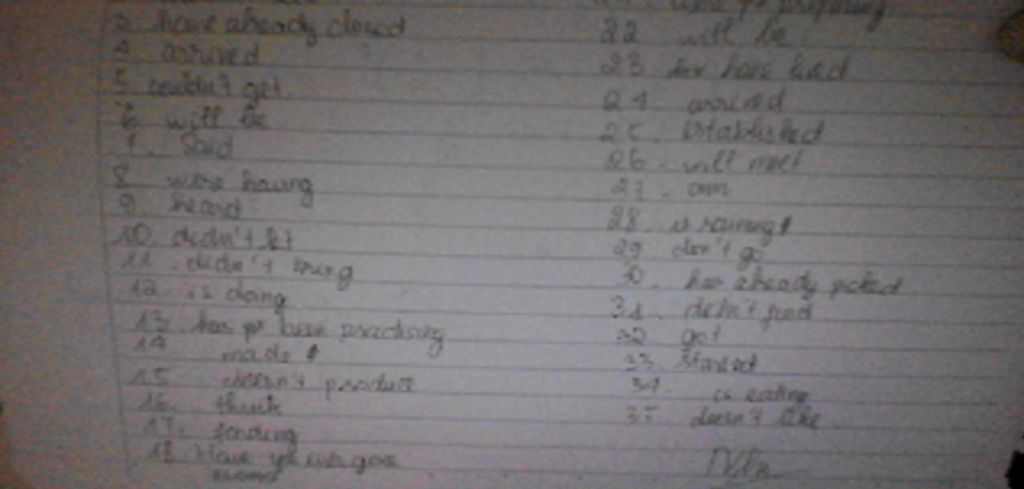 3 have already closed
4 arrived
5 couldn't get
6 will be
7. Said
8 were having
9 heard
10 didn't let
11. didn't bring
12 is doing
13. has been practising
14 made
15 doesn't produce
16. think
17.
18 Have you ever gone
preparing
22 will be
23 have lived
24. arrived
25. established
26. will meet
27. am
28. is raining
29 don't go
30. has already picked
31. didn't find
32 got
33. Started
34. is eating
35. doesn't like